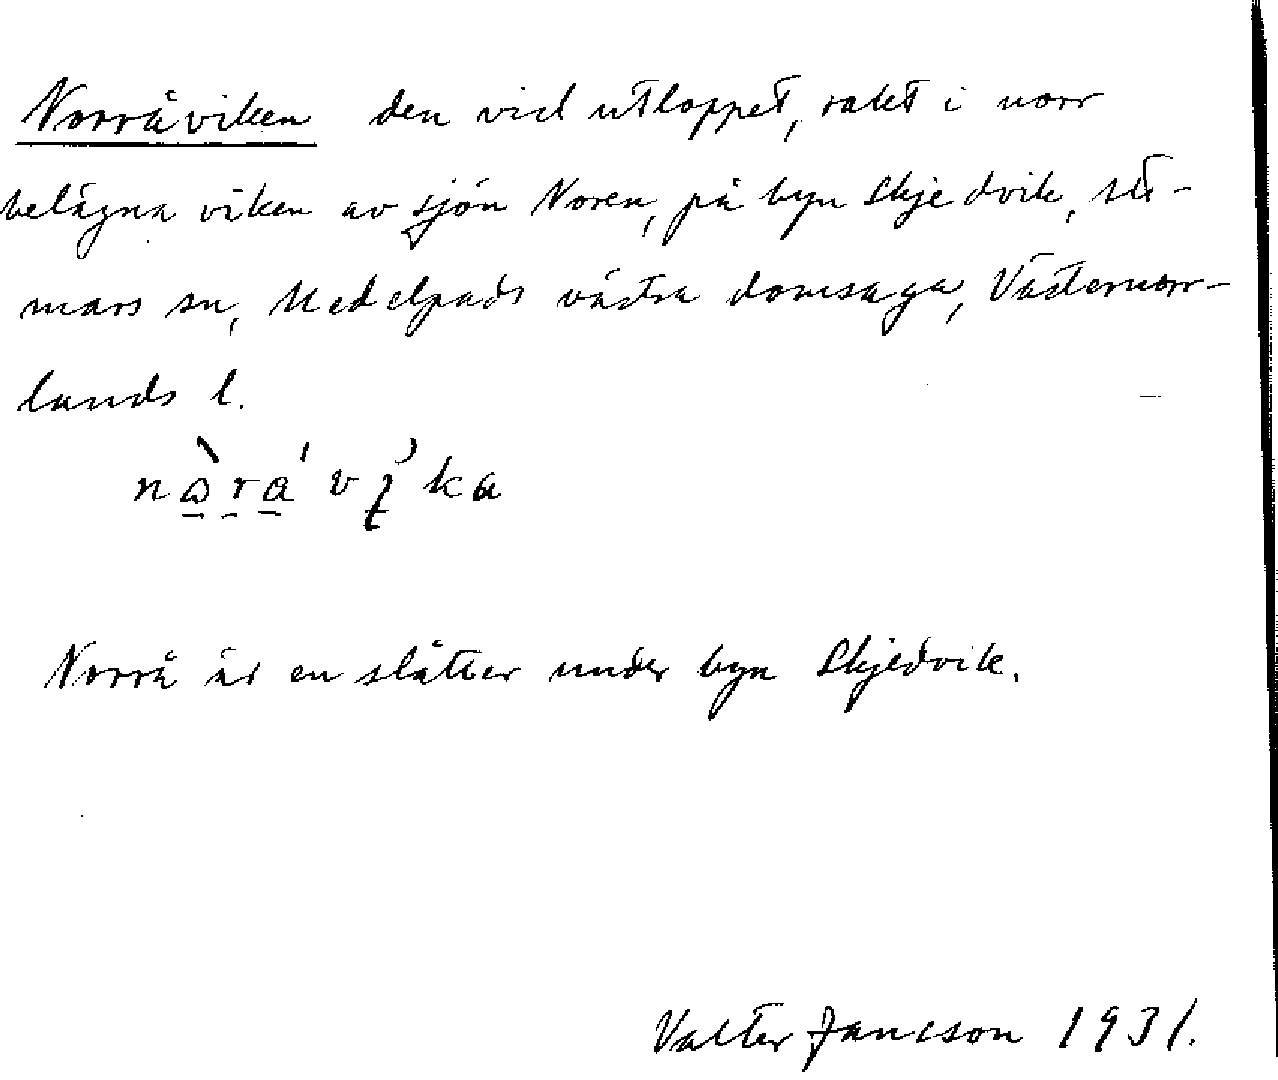 Norråviken den vid utloppet, rakt i norr
belägna viken av sjön Noren, på byn Skjedvik, Stö-
mars sn, Medelpads västra domsaga, Västernorr-
lands l.
Norrå är en slåtter under byn Skjedvik.
Valter Jansson 1931.